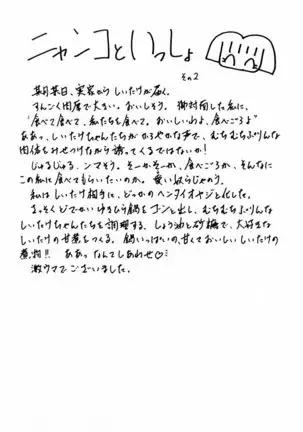 ニャンコといっしょ
その2
某月某日、実家から しいたけが届く。
すんごく肉厚で大きい。おいしそう。御対面した私に、
"食べて食べて、私たちを食べて。おいしいわよ、食べごろよ"
ああっ、しいたけちゃんたちが かろやかな声で、むちむちぷりんな
肉体をみせつけながら誘ってくるではないか!
じゅるじゅる、ンマそう。そーかそーか、食べごろか、そんなに
この私に食べてもらいたいのか。愛い奴らじゃのう。
私は しいたけ相手に、どっかのヘンタイオヤジと化した。
まっそくどでかいゆきひら鍋をゴンと出し、むちむちぷりんな
しいたけちゃんたちを調理する。しょう油と砂糖で、大好きな
しいたけの甘煮をつくる。鍋いっぱいの、甘くておいしい しいたけの
煮物!! ああっ なんてしあわせ♡
激ウマでございました。